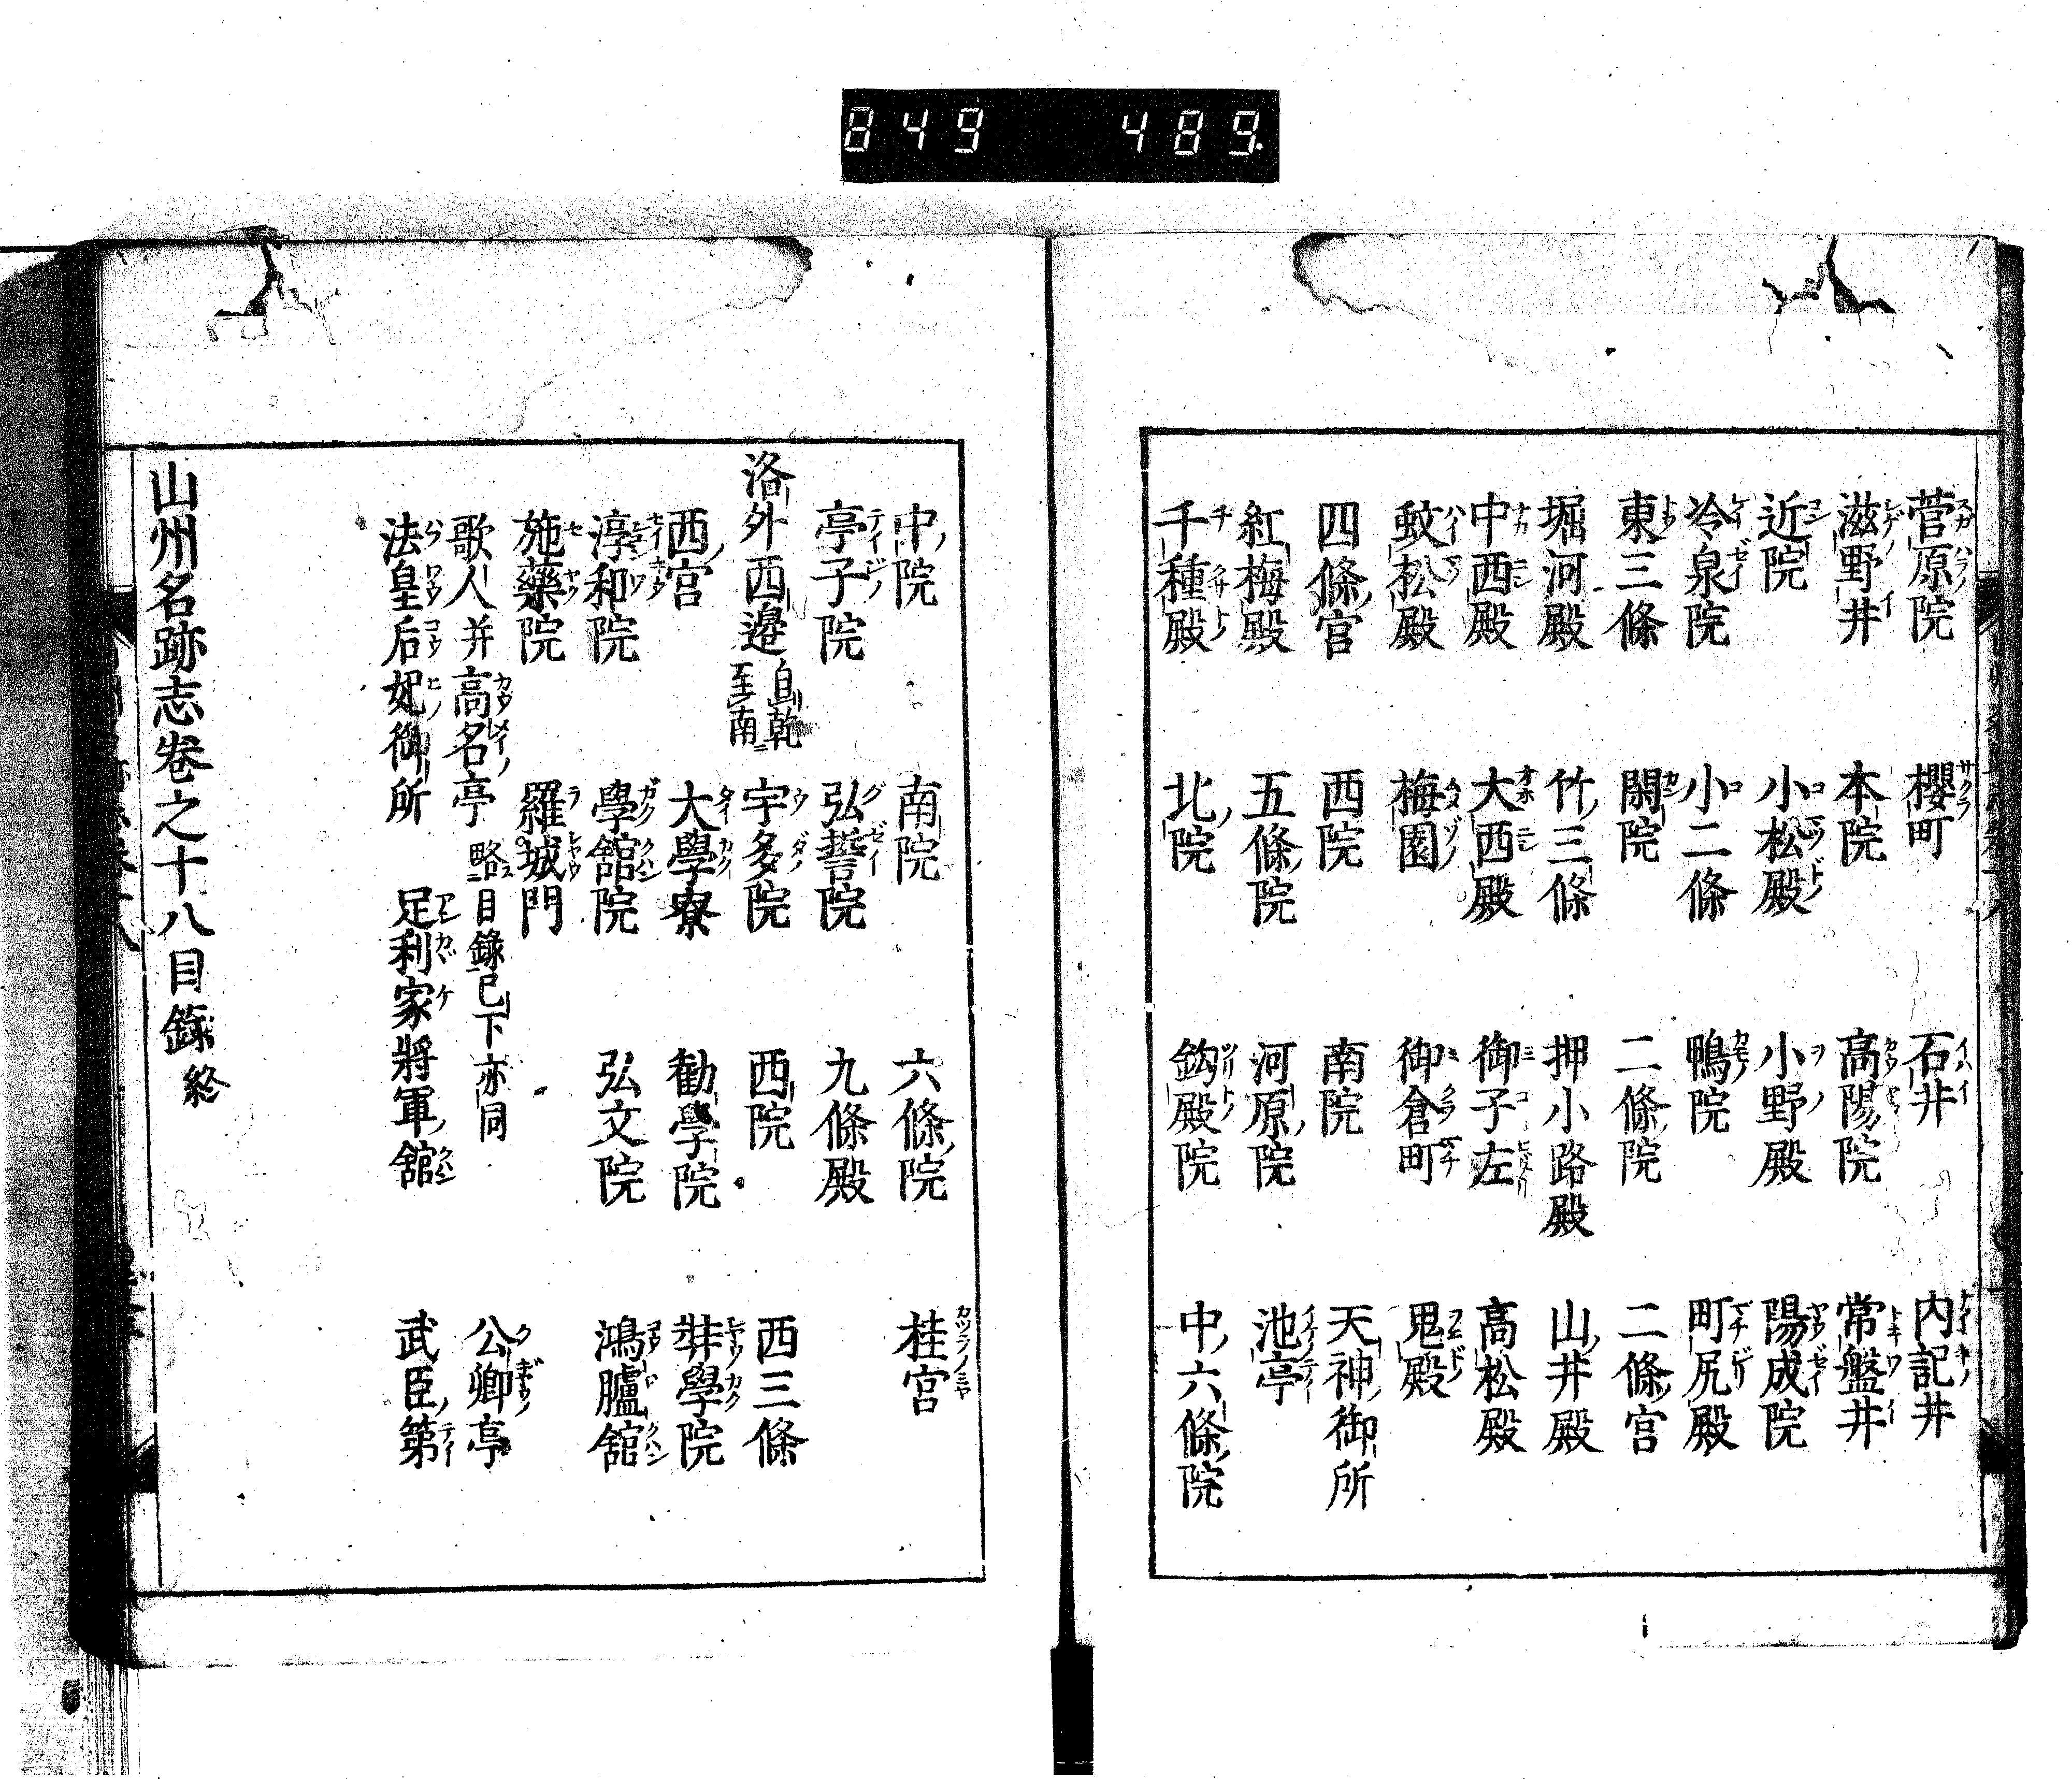 849 489.
菅原院 櫻町 石井 内記井
滋野井 本院 高陽院 常盤井
近院 小松殿 小野殿 陽成院
冷泉院 小二條 鴨院 町尻殿
東三條 閑院 二條院 二條宮
堀河殿 竹三條 押小路殿 山井殿
中西殿 大西殿 御子左 高松殿
蚑松殿 梅園 御倉町 鬼殿
四條宮 西院 南院 天神御所
紅梅殿 五條院 河原院 池亭
千種殿 北院 鈎殿院 中六條院
中院 南院 六條院 桂宮
亭子院 弘誓院 九條殿
洛外西邉 自乾至南 宇多院 西院 西三條
西宮 大學寮 勸學院 弉學院
淳和院 學舘院 弘文院 鴻臚舘
施藥院 羅城門
歌人并高名亭 略目錄已下亦同 公卿亭
法皇后妃御所 足利家將軍舘 武臣第
山州名跡志卷之十八目錄終